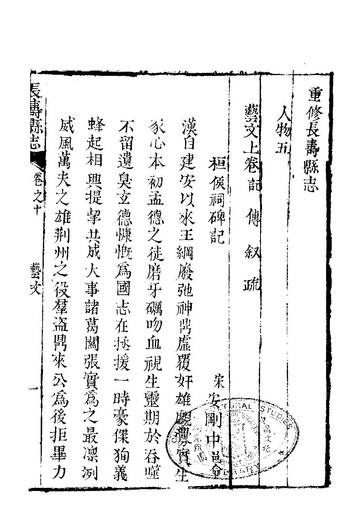 重修長壽縣志
人物五
藝文上卷記 傳 叙 疏
桓侯祠碑記
宋安剛中邑令
漢自建安以來王綱廢弛神噐虛覆奸雄覬覦實生
豕心本初孟德之徒磨牙礪吻血視生靈期於吞噬
不留遺臭玄德慷慨爲國志在拯援一時豪傑狥義
蜂起相與提挈共成大事諸葛關張實爲之最凛冽
威風萬夫之雄荆州之役羣盗閧來公爲後拒畢力
長壽縣志
卷之十
藝文
一